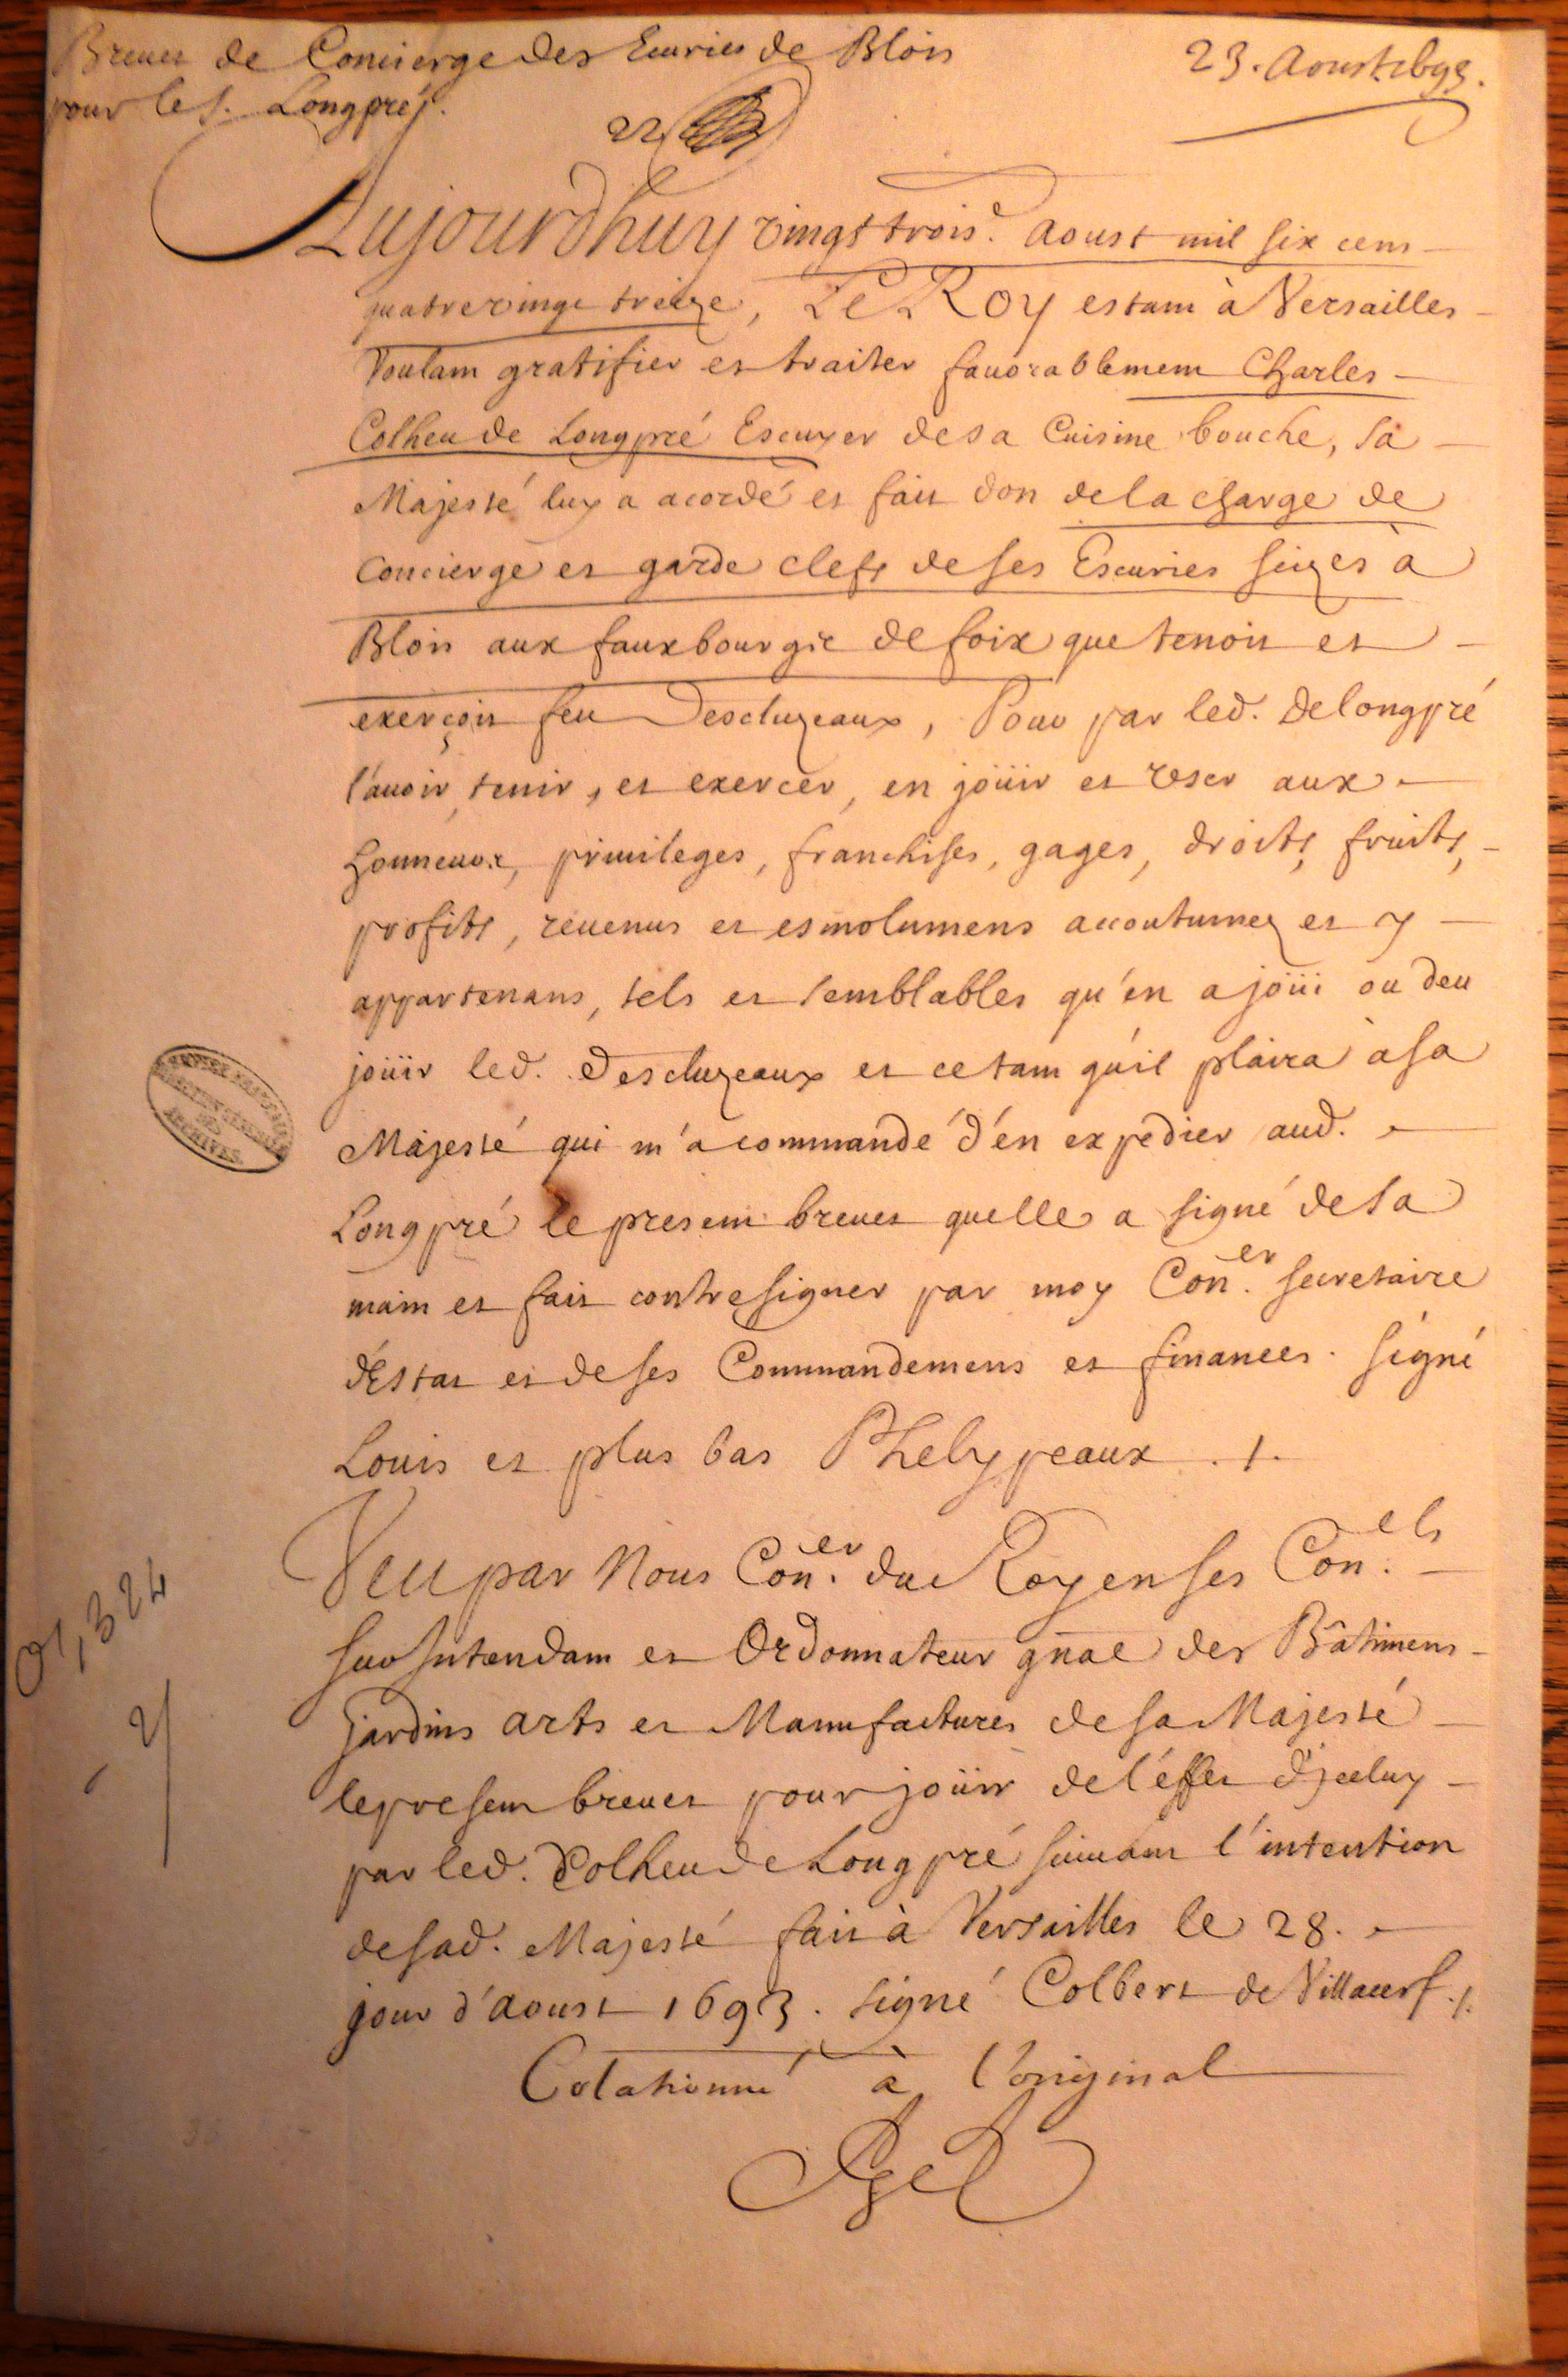 Breuet de Concierge des Ecuries de Blois
pour le s. Longpré.
23. Aoust 1693.
22
Aujourdhuy vingt trois.e Aoust mil six cens
quatrevingt treize, Le Roy estant à Versailles
Voulant gratifier et traiter fauorablement Charles
Colheu de Longpré Escuyer de sa Cuisine bouche, Sa
Majesté luy a acordé et fait don de la charge de
Concierge et garde clefs de ses Escuries sizes à
Blois aux fauxbourgs de foix que tenoit et
exerçoit feu Descluzeaux, Pour par led. de Longpré
l'auoir, tenir, et exercer, en joüir et vser aux
honneurs, priuileges, franchises, gages, droits, fruits,
profits, reuenus et esmolumens accoutumez et y
appartenans, tels et semblables qu'en a joüi ou deu
joüir led. Descluzeaux et ce tant qu'il plaira à Sa
Majesté qui m'a commandé d'en expedier aud.
Longpré le present breuet quelle a signé de sa
main et fait contresigner par moy Con.er Secretaire
d'Estat et de ses Commandemens et finances. Signé
Louis et plus bas Phelypeaux ./.
Veu par Nous Con.er du Roy en ses Con.els
Sur Intendant et Ordonnateur gñal des Bâtimens
Jardins arts et Manufactures de sa Majesté
le present breuet pour joüir de l'effet d'jceluy
par led. Colheu de Longpré suiuant l'intention
de sad. Majesté fait à Versailles le 28.
jour d'Aoust 1693. signé Colbert de Villacerf ./.
Colationné à l'original
O1, 324
ARCHIVES